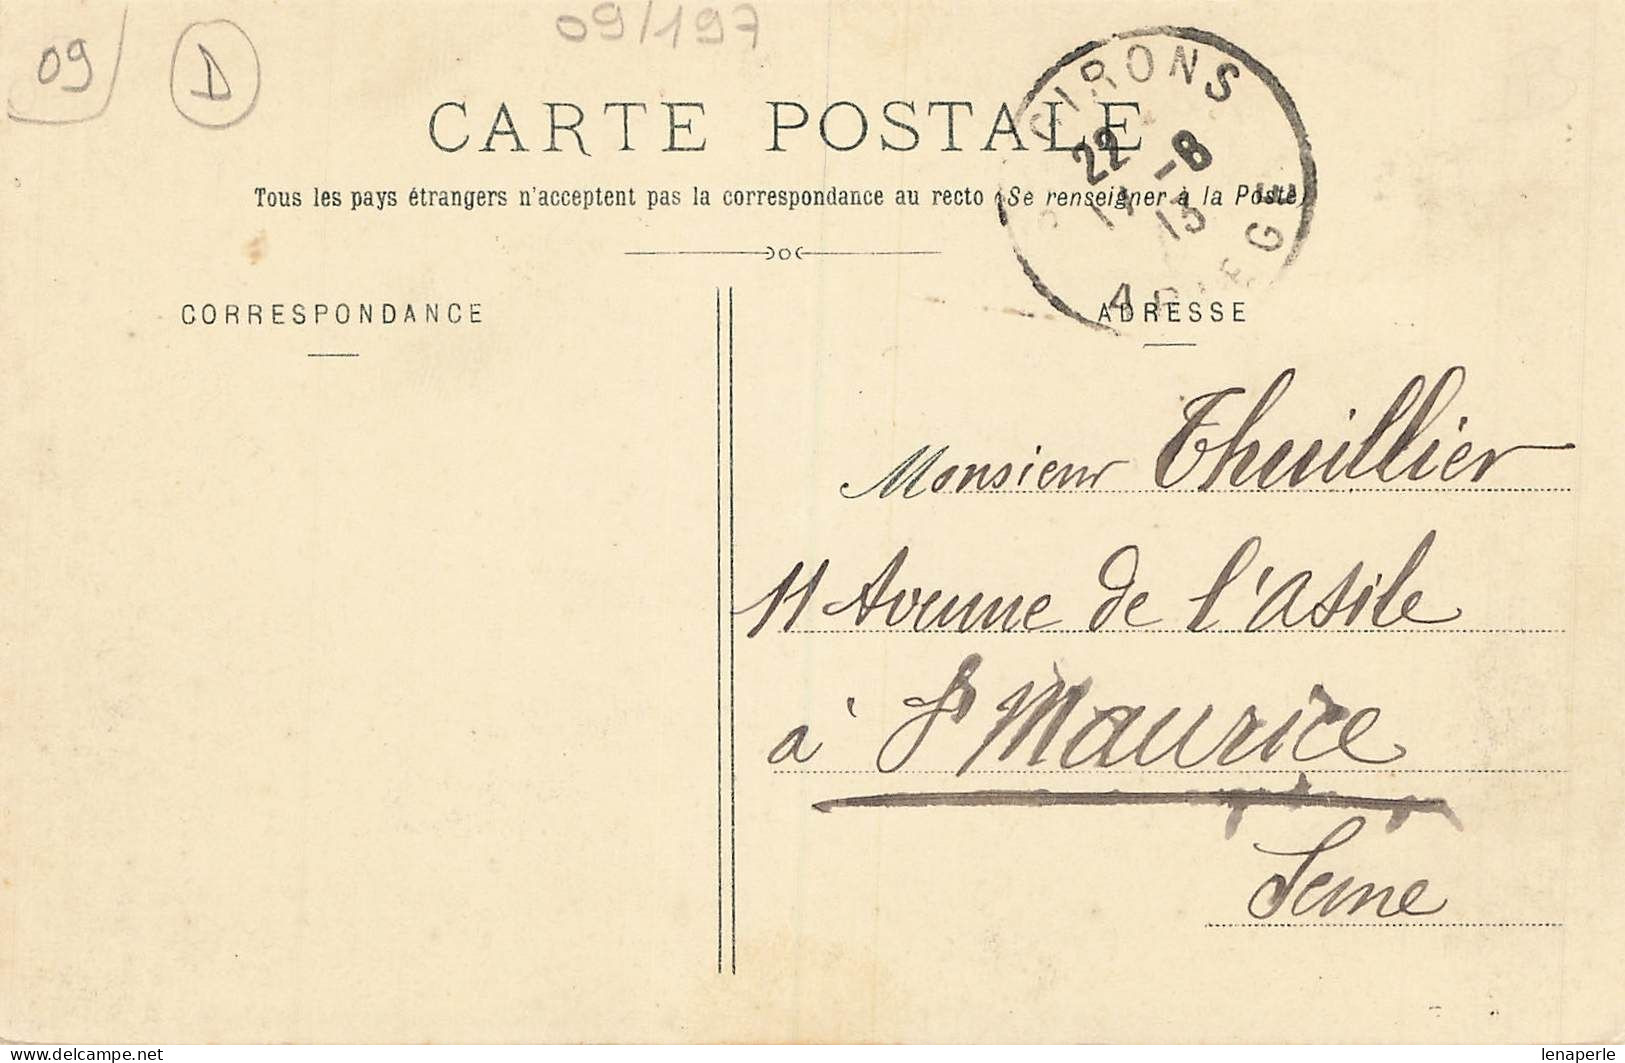 09
D
09/197
CARTE POSTALE
Tous les pays étrangers n'acceptent pas la correspondance au recto (Se renseigner à la Poste)
GIRONS
22 -8
13
ARIEGE
CORRESPONDANCE
ADRESSE
Monsieur Thuillier
11 Avenue de l'Asile
à St Maurice
Seine
© delcampe.net
lenaperle